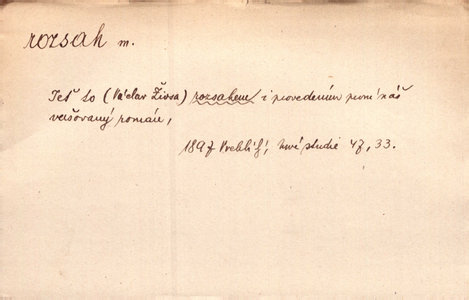 rozsah m.
Jest to (Václav Živsa) rozsahem i provedením první náš
veršovaný román,
1897 Vrchlický, Nové studie 47, 33.